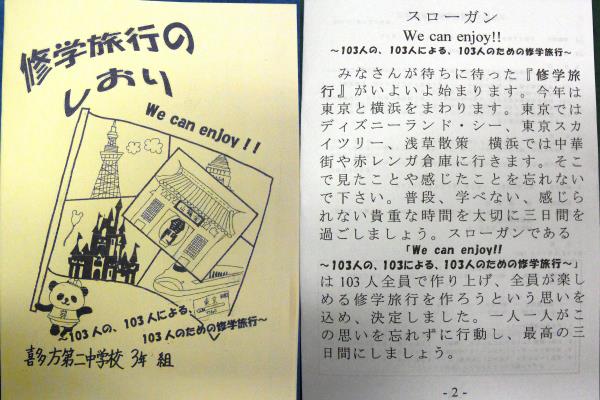 修学旅行の
しおり
We can enjoy!!
雷門
東京
～103人の、103人による、
103人のための修学旅行～
喜多方第二中学校 3年 組
スローガン
We can enjoy!!
～103人の、103人による、103人のための修学旅行～
みなさんが待ちに待った『修学旅
行』がいよいよ始まります。今年は
東京と横浜をまわります。東京では
ディズニーランド・シー、東京スカ
イツリー、浅草散策　横浜では中華
街や赤レンガ倉庫に行きます。そこ
で見たことや感じたことを忘れない
で下さい。普段、学べない、感じら
れない貴重な時間を大切に三日間を
過ごしましょう。スローガンである
「We can enjoy!!
～103人の、103による、103人のための修学旅行～」
は103人全員で作り上げ、全員が楽し
める修学旅行を作ろうという思いを
込め、決定しました。一人一人がこ
の思いを忘れずに行動し、最高の三
日間にしましょう。
- 2 -